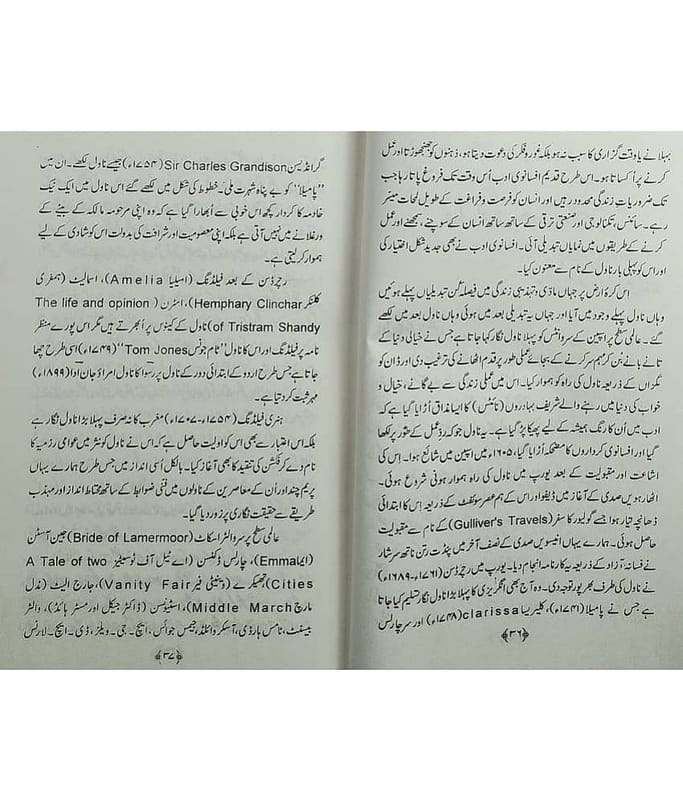 بہلانے یا وقت گزاری کا سبب نہ ہو بلکہ غور و فکر کی دعوت دیتا ہو، ذہنوں کو جھنجھوڑتا اور عمل
کرنے پر اُکساتا ہو۔ اس طرح قدیم افسانوی ادب اُس وقت تک فروغ پاتا رہا جب
تک ضروریاتِ زندگی محدود رہیں اور انسان کو فرصت و فراغت کے طویل لمحات میسر
رہے۔ سائنس، ٹکنالوجی اور صنعتی ترقی کے ساتھ ساتھ انسان کے سوچنے، سمجھنے اور عمل
کرنے کے طریقوں میں نمایاں تبدیلی آئی۔ افسانوی ادب نے بھی جدید شکل اختیار کی
اور اس کو پہلی بار ناول کے نام سے معنون کیا۔
اس کرۂ ارض پر جہاں مادّی و تہذیبی زندگی میں فیصلہ کُن تبدیلیاں پہلے ہوئیں
وہاں ناول پہلے وجود میں آیا اور جہاں یہ تبدیلی بعد میں ہوئی وہاں ناول بعد میں لکھے
گئے۔ عالمی سطح پر اسپین کے سروانٹس کو پہلا ناول نگار کہا جاتا ہے جس نے خیالی دنیا کے
تانے بانے بُن کر ہم سر کرنے کے بجائے عملی طور پر قدم اٹھانے کی ترغیب دی اور ڈان کو
ئکزاں کے ذریعہ ناول کی راہ کو ہموار کیا۔ اس میں عملی زندگی سے بے گانے، خیال و
خواب کی دنیا میں رہنے والے شریف بہادروں (نائٹس) کا ایسا مذاق اُڑایا گیا ہے کہ
ادب میں اُن کا رنگ ہمیشہ کے لیے پھیکا پڑ گیا ہے۔ یہ ناول جو کہ ردِعمل کے طور پر لکھا
گیا اور افسانوی کرداروں کا مضحکہ اُڑایا گیا، ۱۶۰۵ء میں اسپین میں شائع ہوا۔ اس کی
اشاعت اور مقبولیت کے بعد یورپ میں ناول کی راہ ہموار ہونی شروع ہوئی۔
اٹھارہویں صدی کے آغاز میں ڈیفو اور اس کے ہم عصر سوئفٹ کے ذریعہ اس کا ابتدائی
ڈھانچہ تیار ہوا جسے گولیور کا سفر (Gulliver's Travels) کے نام سے مقبولیت
حاصل ہوئی۔ ہمارے یہاں انیسویں صدی کے نصف آخر میں پنڈت رتن ناتھ سرشار
نے فسانۂ آزاد کے ذریعہ یہ کارنامہ انجام دیا۔ یورپ میں رچرڈسن (۱۷۶۱ء-۱۶۸۹ء)
نے ناول کی طرف بھرپور توجہ دی۔ وہ آج بھی انگریزی کا پہلا بڑا ناول نگار تسلیم کیا جاتا
ہے جس نے پامیلا (۱۷۴۱ء)، کلیریسا clarissa (۱۷۴۸ء) اور سر چارلس
﴿۳۶﴾
گرانڈیسن Sir Charles Grandison (۱۷۵۴ء) جیسے ناول لکھے۔ ان میں
"پامیلا" کو بے پناہ شہرت ملی۔ خطوط کی شکل میں لکھے گئے اس ناول میں ایک نیک
خادمہ کا کردار کچھ اس خوبی سے اُبھارا گیا ہے کہ وہ اپنی مرحومہ مالکہ کے بیٹے کے
ورغلانے میں نہیں آتی ہے بلکہ اپنی معصومیت اور شرافت کی بدولت اس کو شادی کے لیے
ہموار کر لیتی ہے۔
رچرڈسن کے بعد فیلڈنگ (امیلیا Amelia)، اسمالیٹ (ہمفری
کلنکر Hemphary Clinchar)، اسٹرن (The life and opinion
of Tristram Shandy) ناول کے کینوس پر اُبھرتے ہیں مگر اس پورے منظر
نامہ پر فیلڈنگ اور اس کا ناول "ٹام جونس Tom Jones" (۱۷۴۹ء) اسی طرح چھا
جاتا ہے جس طرح اردو کے ابتدائی دور کے ناول پر رسوا کا ناول امراؤ جان ادا (۱۸۹۹ء)
مہر ثبت کر دیتا ہے۔
ہنری فیلڈنگ (۱۷۵۴ء-۱۷۰۷ء) مغرب کا نہ صرف پہلا بڑا ناول نگار ہے
بلکہ اس اعتبار سے بھی اس کو اولیت حاصل ہے کہ اس نے ناول کو نثر میں عوامی رزمیہ کا
نام دے کر فکشن کی تنقید کا بھی آغاز کیا۔ بالکل اُسی انداز میں جس طرح ہمارے یہاں
پریم چند اور اُن کے معاصرین کے ناولوں میں فنّی ضوابط کے ساتھ محتاط انداز اور مہذب
طریقے سے حقیقت نگاری پر زور دیا گیا۔
عالمی سطح پر سر والٹر اسکاٹ (Bride of Lamermoor) جین آسٹن
(ایما Emma)، چارلس ڈکنسن (اے ٹیل آف ٹو سیٹیز A Tale of two
Cities) تھیکرے (وینیٹی فیر Vanity Fair)، جارج الیٹ (مڈل
مارچ Middle March)، اسٹیونسن (ڈاکٹر جیکل اور مسٹر ہائڈ)، والٹر
بیسنٹ، ٹامس ہارڈی، آسکر وائلڈ، جیمس جوائس، ایچ۔ جی۔ ویلز، ڈی۔ ایچ۔ لارنس
﴿۳۷﴾